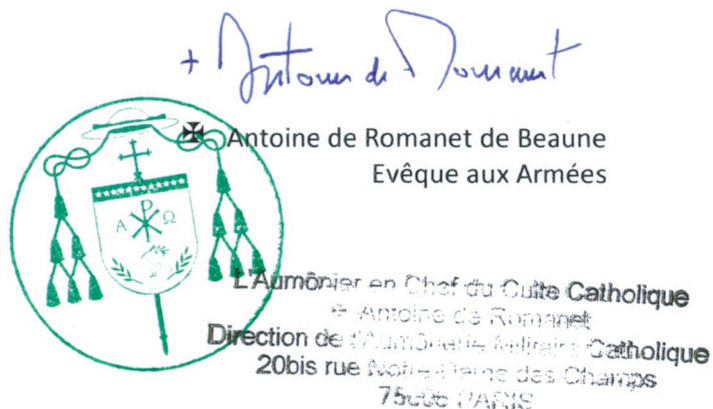 + Antoine de Romanet
✠ Antoine de Romanet de Beaune
Evêque aux Armées
Α Ρ Ω
L'Aumônier en Chef du Culte Catholique
✠ Antoine de Romanet
Direction de l'Aumônerie Militaire Catholique
20bis rue Notre-Dame des Champs
75006 PARIS